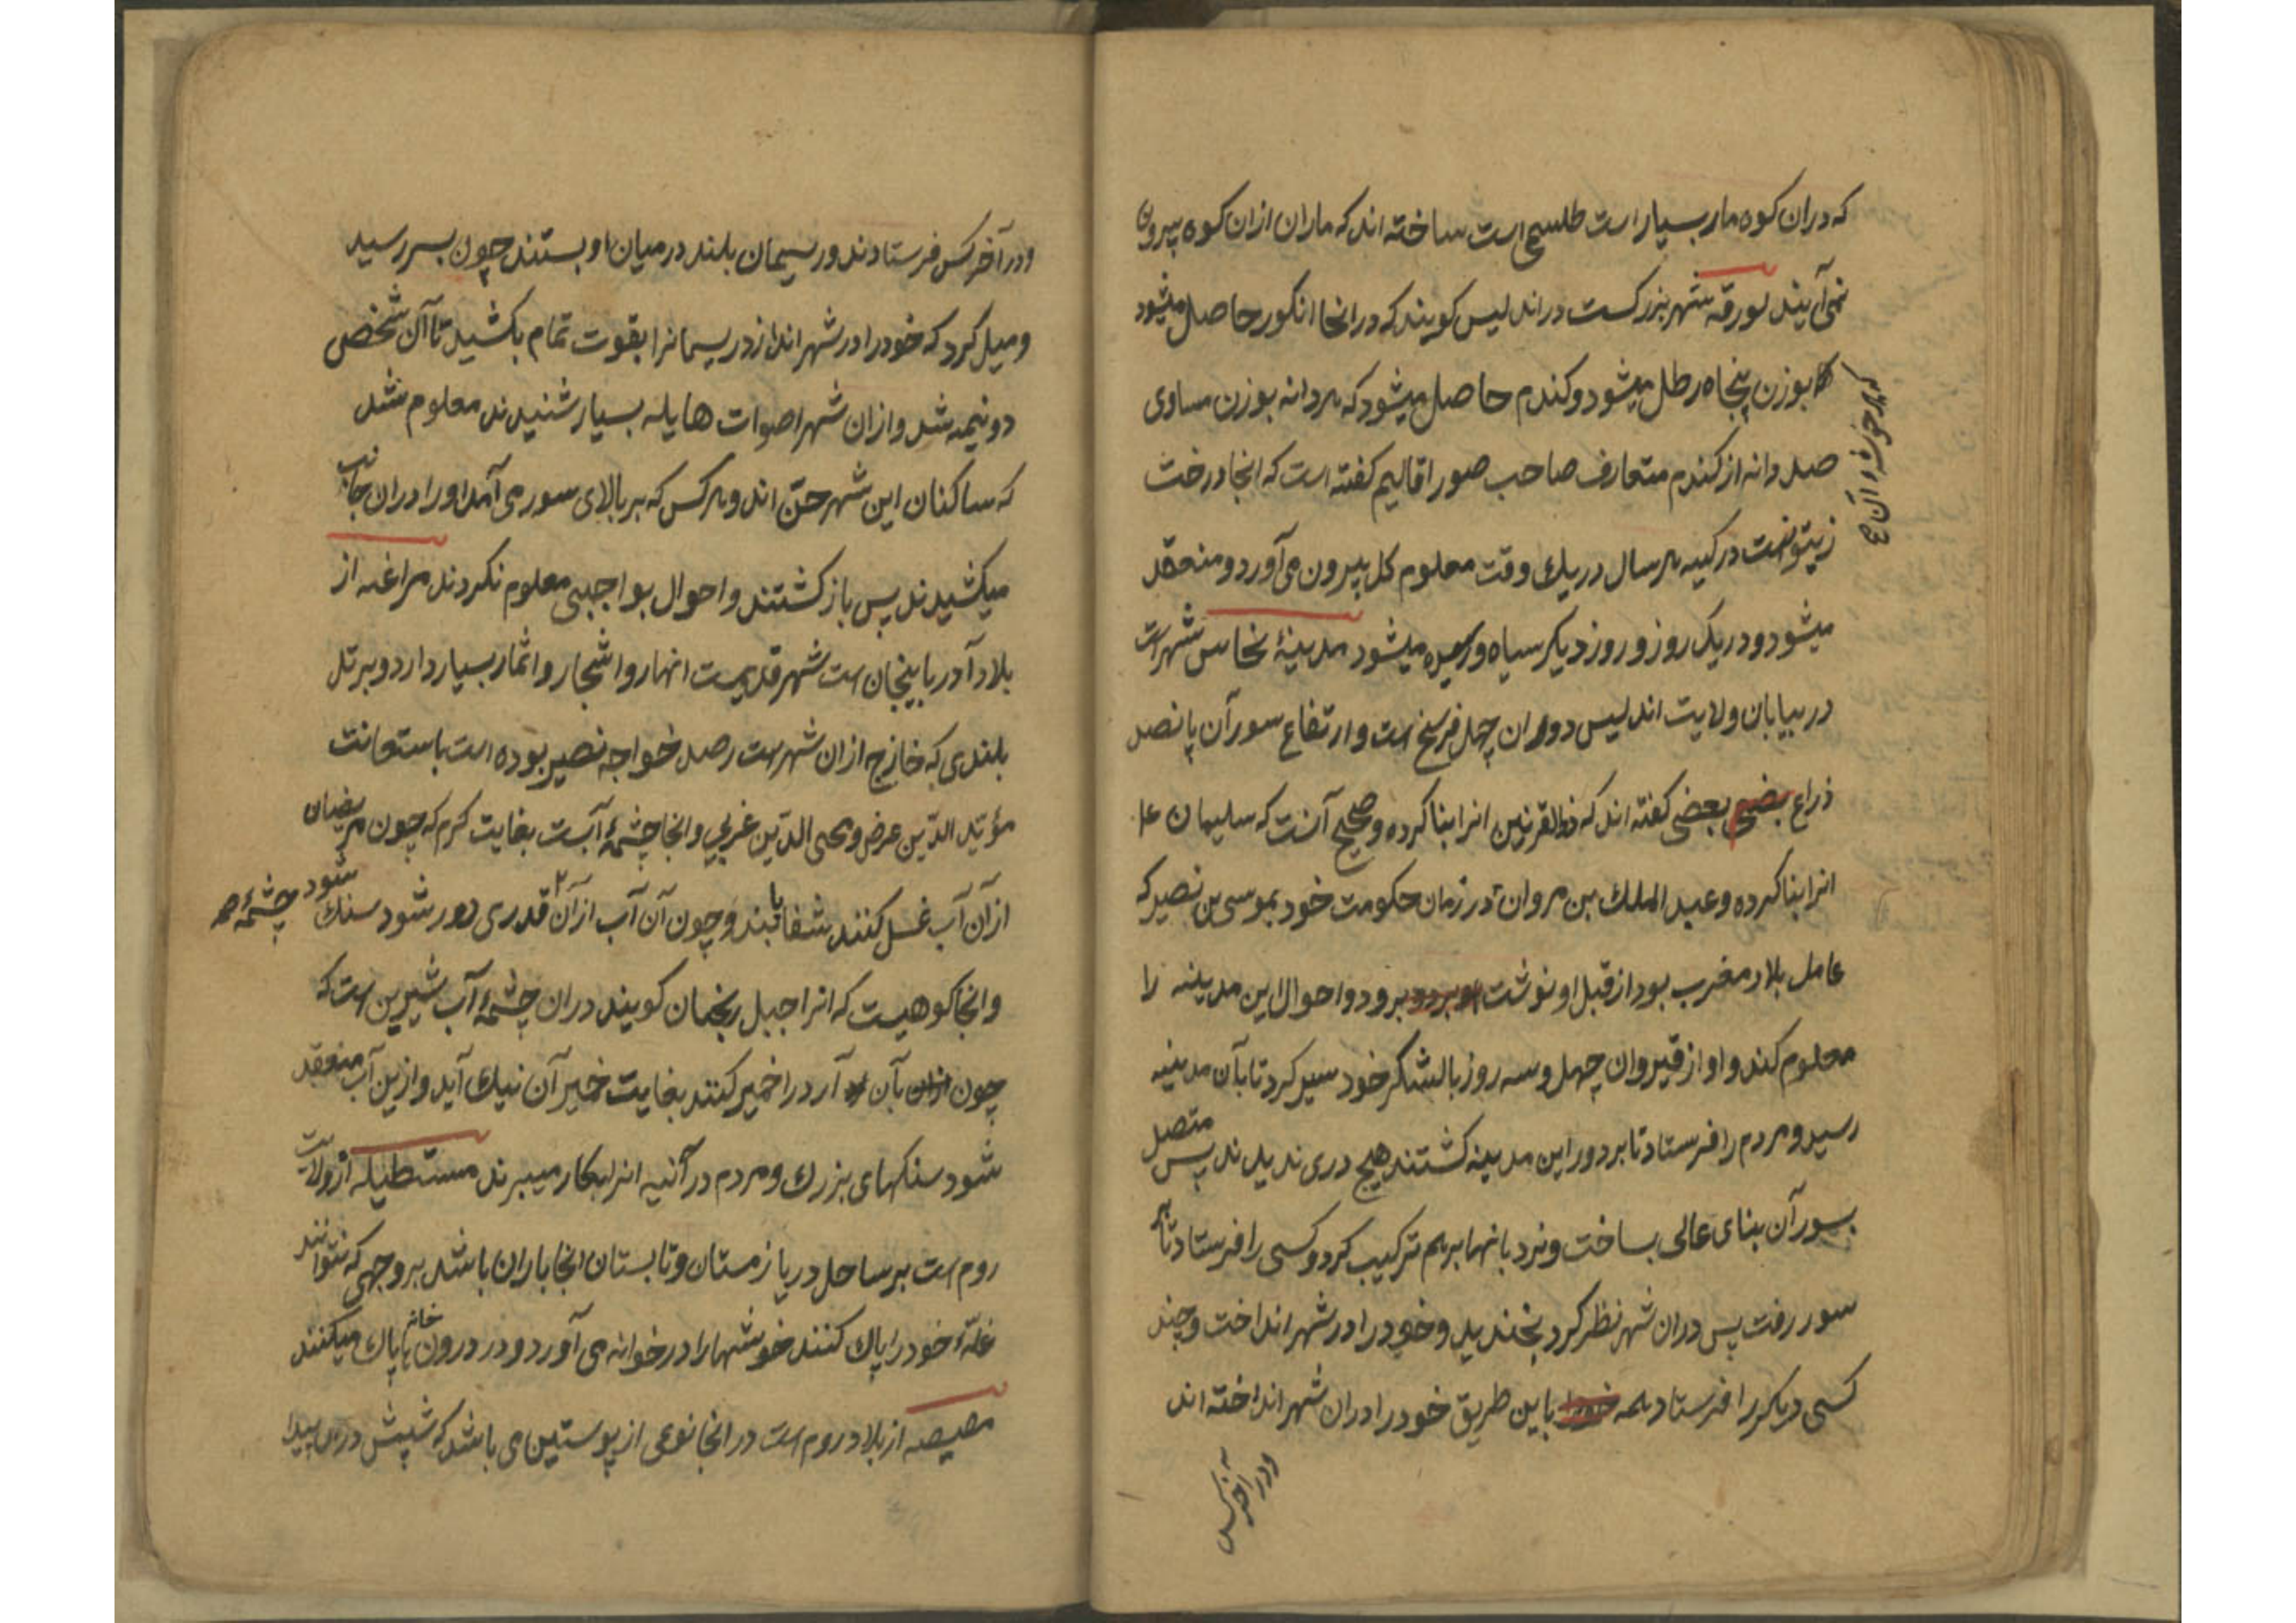 که دران کوه مار بسیار است طلسمی است ساخته اند که ماران ازان کوه بیرون
نمی آیند لورقه شهر بزرکست در اندلیس کویند که در انجا انکور حاصل میشود
بوزن پنجاه رطل میشود و کندم حاصل میشود که هر دانه بوزن مساوی
که هر خوشه از آن
صد دانه از کندم متعارف صاحب صور اقالیم کفته است که انجا درخت
زیتونست در کنیسه هر سال در یک وقت معلوم کل بیرون می آورد و منعقد
میشود و در یک روز و روز دیکر سیاه و رسیده میشود مدینهٔ نحاس شهریست
در بیابان ولایت اندلیس دوران چهل فرسخ است و ارتفاع سور آن پانصد
ذراع بعضی کفته اند که ذوالقرنین انرا بنا کرده و صحیح آنست که سلیمان ع
انرا بنا کرده و عبد الملک بن مروان در زمان حکومت خود بموسی بن نصیر که
عامل بلاد مغرب بود از قبل او نوشت برود و احوال این مدینه را
معلوم کند و او از قیروان چهل و سه روز با لشکر خود سیر کرد تا بآن مدینه
رسید و مردم را فرستاد تا بر دور این مدینه کشتند هیچ دری ندیدند پس متصل
بسور آن بنای عالی بساخت و نردبانها بر هم ترکیب کرد و کسی را فرستاد تا بر
سور رفت پس دران شهر نظر کرد بخندید و خود را در شهر انداخت و چند
کسی دیکر را فرستاد همه باین طریق خود را دران شهر انداخته اند
ودر آخر کس
ودر آخر کس فرستادند و ریسمان بلند در میان او بستند چون بسر رسید
و میل کرد که خود را در شهر اندازد ریسمانرا بقوت تمام بکشید تا آن شخص
دو نیمه شد و ازان شهر اصوات هایله بسیار شنیدند معلوم شد
که ساکنان این شهر جن اند و هر کس که بر بالای سور می آمد او را دران جانب
میکشیدند پس باز کشتند و احوال بواجبی معلوم نکردند مراغه از
بلاد آدربایجان است شهر قدیمست انهار و اشجار و اثمار بسیار دارد و بر تل
بلندی که خارج ازان شهرست رصد خواجه نصیر بوده است باستعانت
مؤید الدین عرضی و محی الدین غربی و انجا چشمهٔ آبست بغایت کرم که چون مریضان
ازان آب غسل کنند شفا یابند و چون آن آب ازان قدری دور شود سنک شود
چشمهٔ
و انجا کوهیست که انرا جبل کویند دران چشمهٔ آب شیرین است که
چون بآن آرد را خمیر کنند بغایت خمیر آن نیک آید و ازین آب منعقد
شود سنکهای بزرک و مردم در آنیه انرا بکار میبرند مستطیله از ولایت
روم است بر ساحل دریا زمستان و تابستان انجا باران باشد بر وجهی که نتوانند
غلهٔ خود را پاک کنند خوشها را در خوانه می آورد و در درون خانها پاک میکنند
مصیصه از بلاد روم است در انجا نوعی از پوستین می باشد که شپش دران پیدا